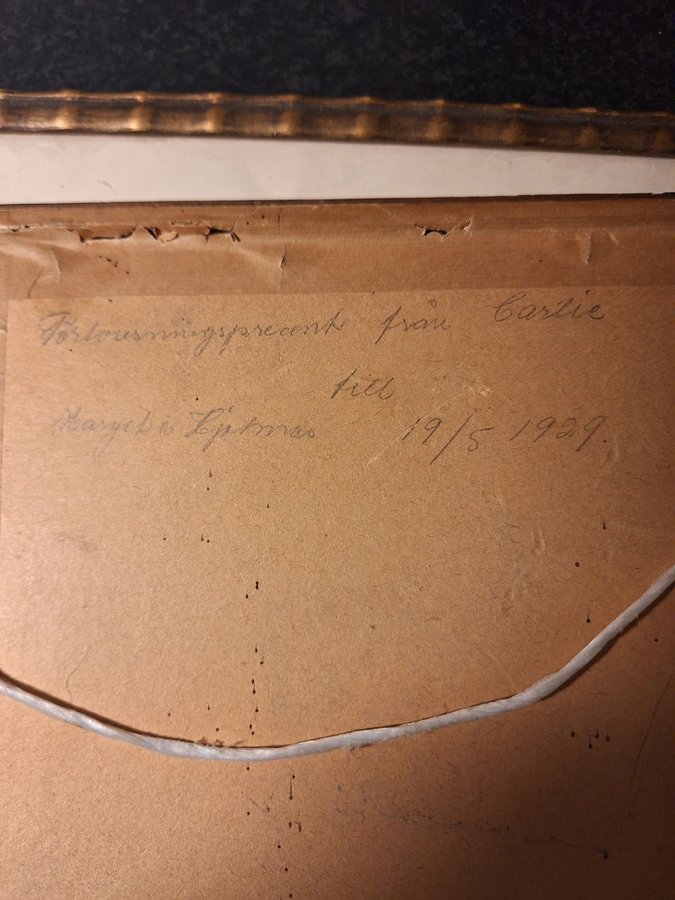 Förlovningspresent från Carlie
till
Margit o Hjalmar 19/5 1929.